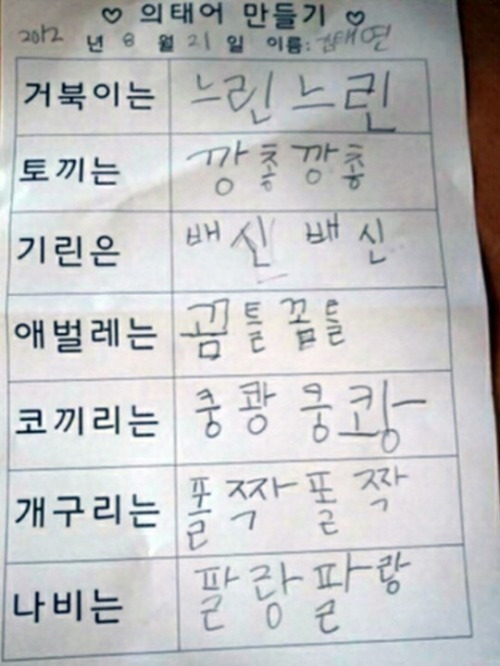 ♡ 의태어 만들기 ♡
2012 년 8 월 21 일 이름: 김태연
거북이는 느린느린
토끼는 깡충깡충
기린은 배신 배신
애벌레는 꿈틀꿈틀
코끼리는 쿵쾅쿵쾅
개구리는 폴짝폴짝
나비는 팔랑팔랑